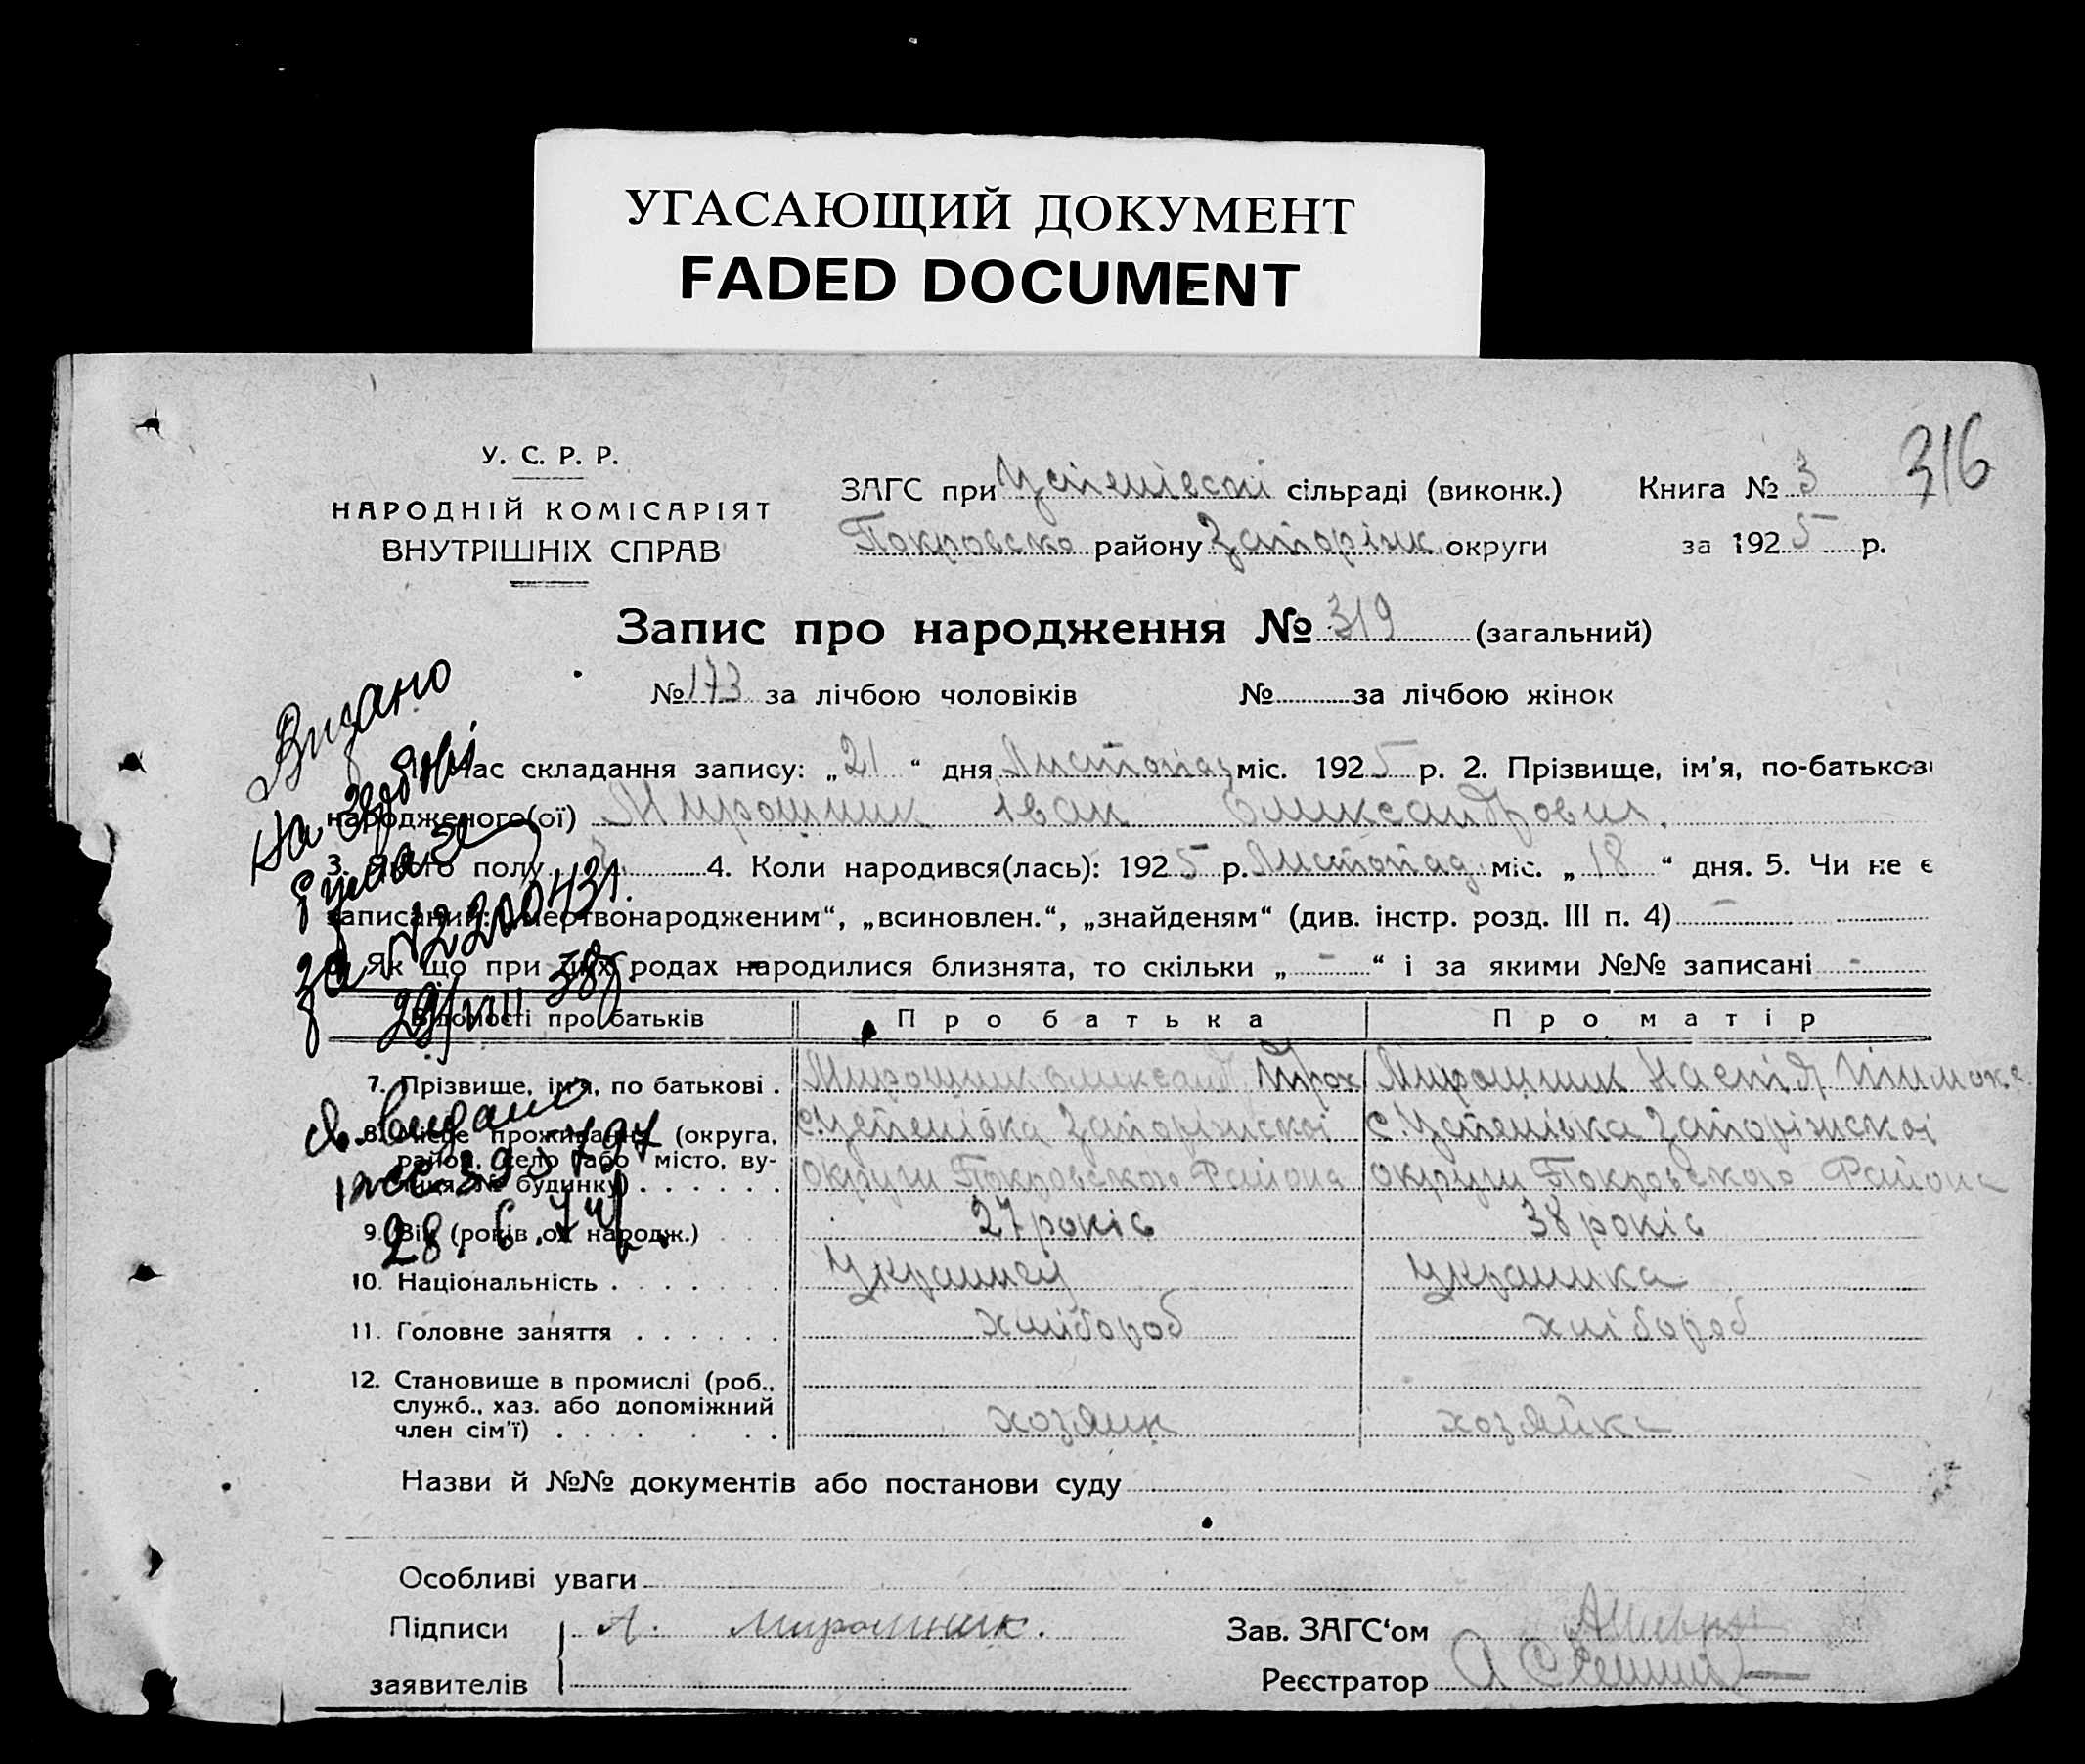 УГАСАЮЩИЙ ДОКУМЕНТ
FADED DOCUMENT
316
У. С. Р. Р.
НАРОДНІЙ КОМІСАРІЯТ
ВНУТРІШНІХ СПРАВ
ЗАГС при Успенівскі сільраді (виконк.) Книга № 3
Покровско району Запоріжк округи за 1925 р.
Запис про народження № 319 (загальний)
№ 173 за лічбою чоловіків № за лічбою жінок
Видано
на
1. Час складання запису: „21“ дня Листопад міс. 1925 р. 2. Прізвище, ім'я, по-батькові
народженого(ої) Мирошник Іван Олександрович.
3. Якого полу ч 4. Коли народився(лась): 1925 р. Листопад міс. „18“ дня. 5. Чи не є
записаний: „мертвонародженим“, „всиновлен.“, „знайденям“ (див. інстр. розд. III п. 4) -
Як що при цих родах народилися близнята, то скільки „-“ і за якими №№ записані -
за 29/VIII 38р
Відомості про батьків Про батька Про матір
7. Прізвище, ім'я, по батькові . Мирошник Олександ Трох Мирошник Настія Тимохв
св. видано
8. Місце проживання (округа, с. Успенівка Запоріжскоі с. Успенівка Запоріжскоі
район, село або місто, ву-
лиця, № будинку) . . . . . . округи Покровского Району округи Покровского Району
9. Вік (років од народж.) 27 років 38 років
28. 6. 74г.
10. Національність . . . . . . Украинец Украинка
11. Головне заняття . . . . . . хлібороб хлібороб
12. Становище в промислі (роб.,
служб., хаз. або допоміжний
член сім'ї) . . . . . . хозяин хозяйка
Назви й №№ документів або постанови суду
Особливі уваги
Підписи А. Мирошник. Зав. ЗАГС‘ом
заявителів Реєстратор